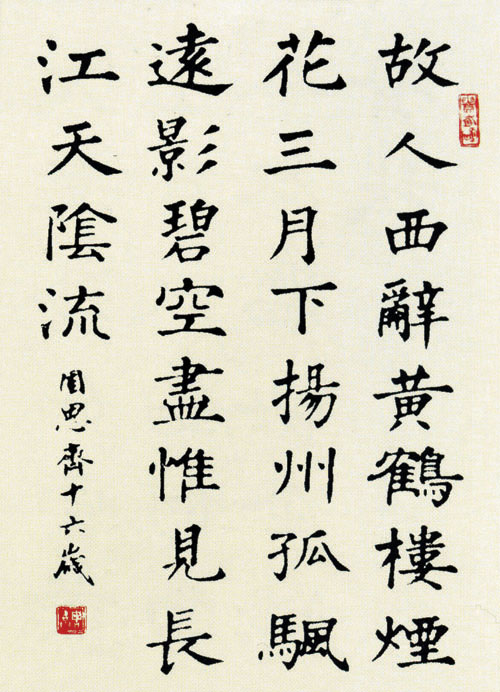 故人西辭黃鶴樓煙
花三月下揚州孤颿
遠影碧空盡惟見長
江天隂流
周思齊十六歲